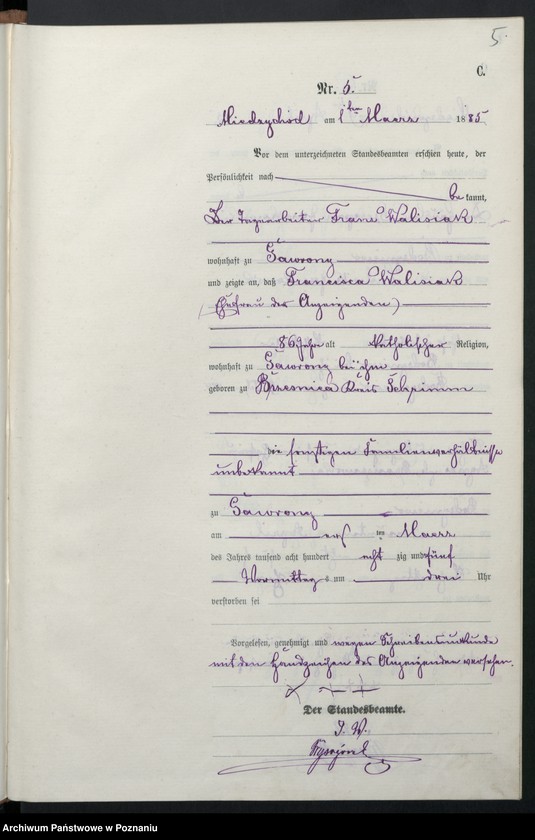 5.
C.
Nr. 5.
Miedzychód am 1ten Maerz 1885
Vor dem unterzeichneten Standesbeamten erschien heute, der
Persönlichkeit nach
bekannt,
Der Tagearbeiter Franz Walisiak
wohnhaft zu Gaworong
und zeigte an, daß Francisca Walisiak
(Ehefrau des Anzeigenden)
86 Jahre alt Katholischer Religion,
wohnhaft zu Gaworong bei ihm
geboren zu Brzesnica Kreis Schrimm
die sonstigen Familienverhältnisse
unbekannt
zu Gaworong
am ersten Maerz
des Jahres tausend acht hundert achtzig und fünf
Vormittags um drei Uhr
verstorben sei
Vorgelesen, genehmigt und wegen Schreibensunkunde
mit den Handzeichen des Anzeigenden versehen.
+++
Der Standesbeamte.
J. V.
Archiwum Państwowe w Poznaniu